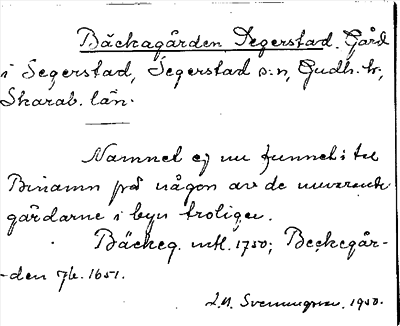 Bäckagården, Segerstad. Gård
i Segerstad, Segerstad s:n, Gudh. h.,
Skarab. län.
Namnet ej nu funnet i
Binamn på någon av de nuvarande
gårdarne i byn troligen.
Bäckeg. mtl. 1750; Beckegår-
-den Jb. 1651.
1950.